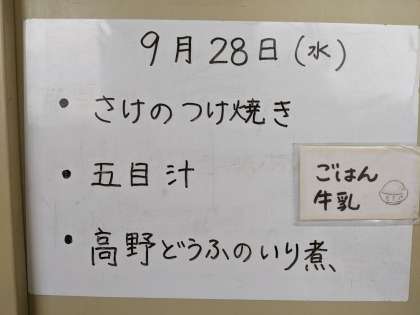 9月28日(水)
• さけのつけ焼き
• 五目汁
ごはん
牛乳
• 高野どうふのいり煮